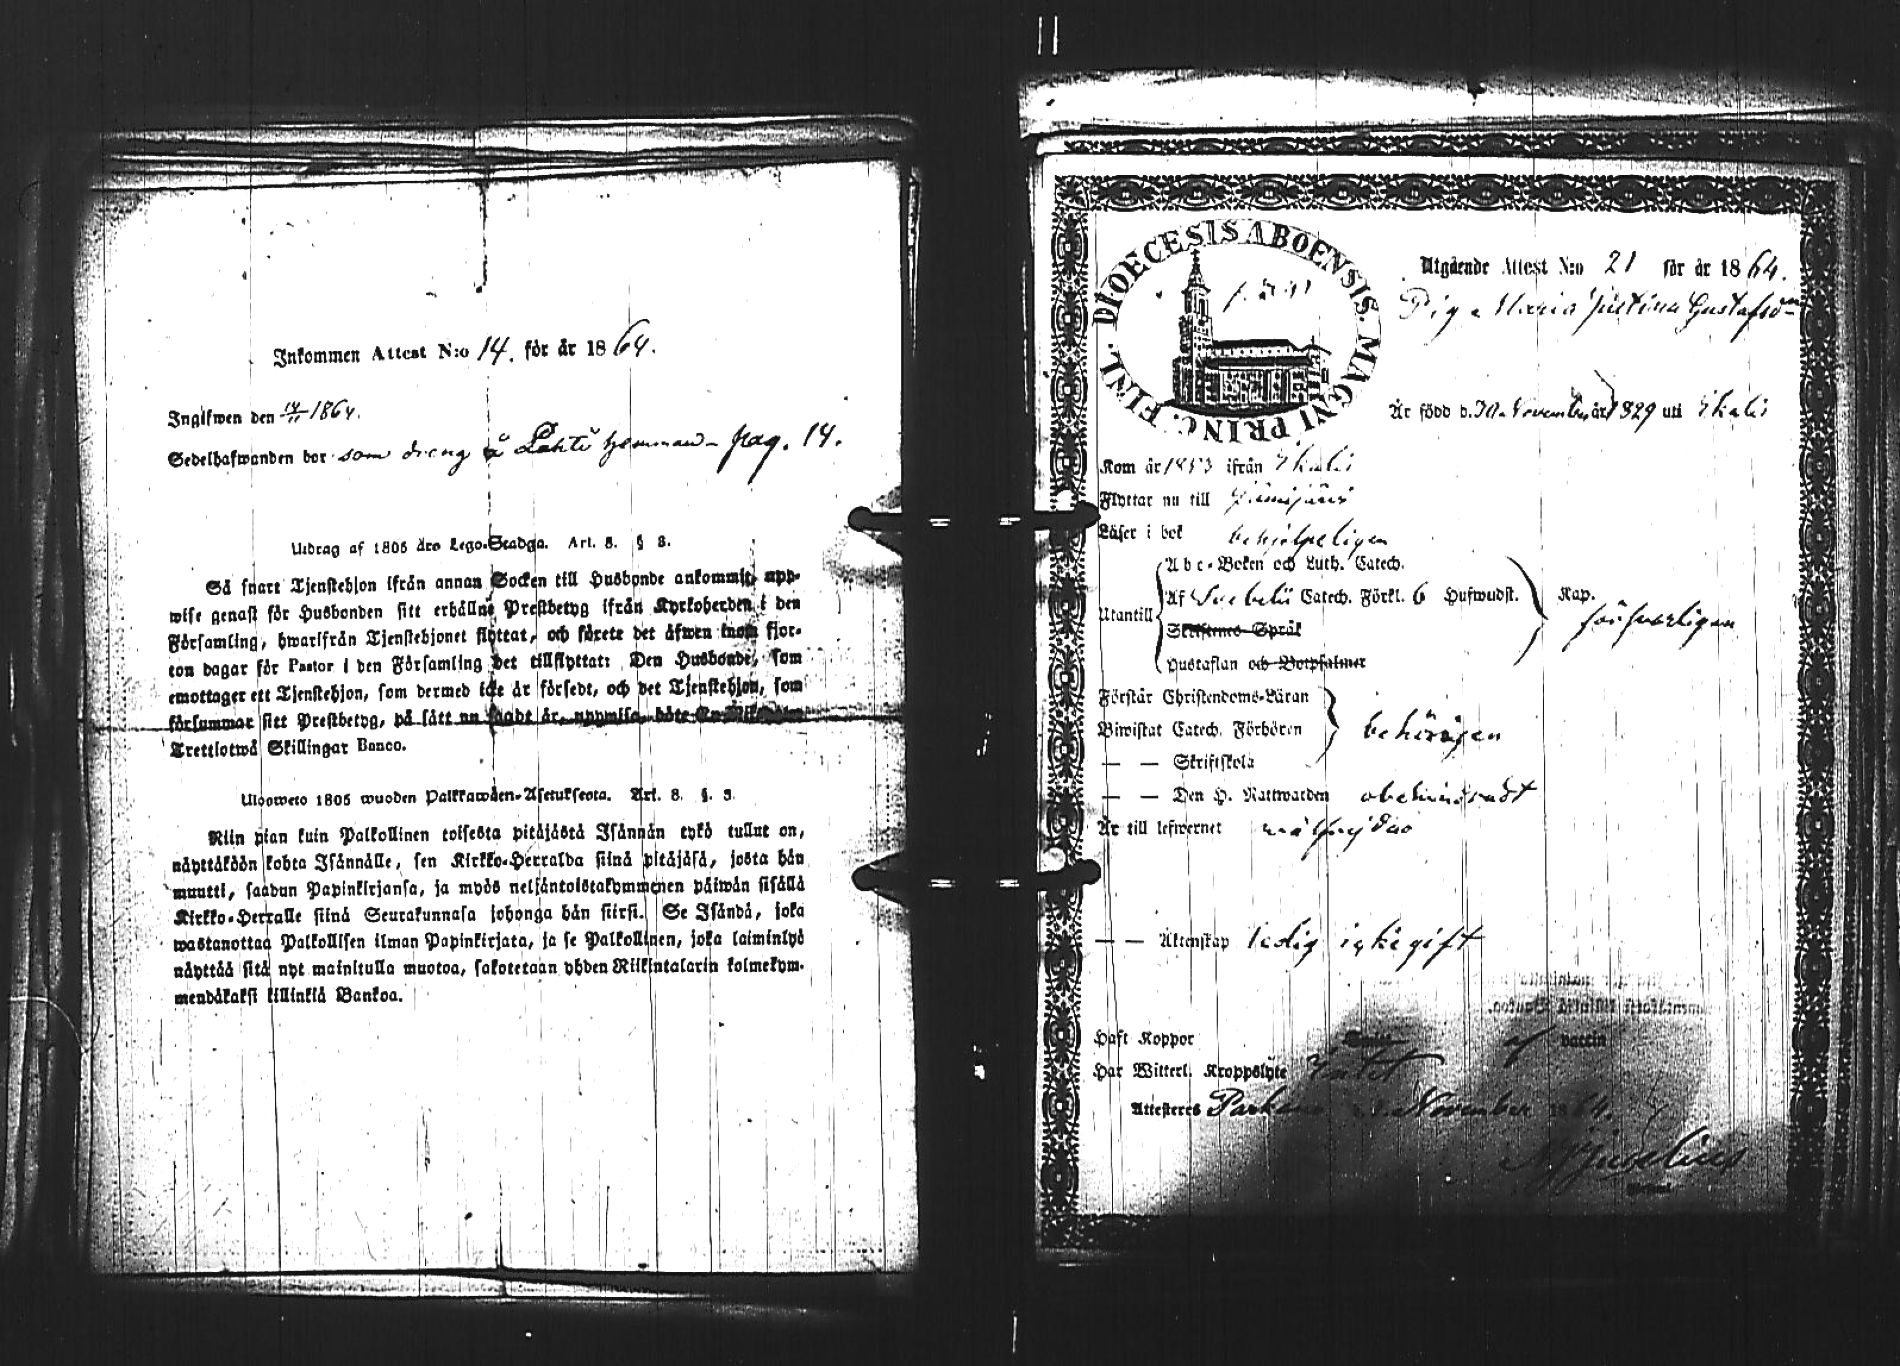 Inkommen Attest N:o 14. för år 1864.
Ingifwen den 14/11 1864.
Sedelhafwanden bor som dreng å Lahti hemman pag. 14.
Utdrag af 1805 års Lego-Stadga. Art. 8. § 3.
Så snart Tjenstehjon ifrån annan Socken till Husbonde ankommit, upp-
wise genast för Husbonden sitt erhållne Prestbetyg ifrån Kyrkoherden i den
Församling, hwarifrån Tjenstehjonet flyttat, och förete det äfwen inom fjor-
ton dagar för Pastor i den Församling det tillflyttat: Den Husbonde, som
emottager ett Tjenstehjon, som dermed icke är försedt, och det Tjenstehjon, som
försummar sitt Prestbetyg, på sätt nu sagdt är, uppwisa, böte En Riksdaler
Trettiotwå Skillingar Banco.
Ulosweto 1805 wuoden Palkkawäen-Asetuksesta. Art. 8. §. 3.
Niin pian kuin Palkollinen toisesta pitäjästä Isännän tykö tullut on,
näyttäköön kohta Isännälle, sen Kirkko-Herralda siinä pitäjäsä, josta hän
muutti, saadun Papinkirjansa, ja myös neljäntoistakymmenen päiwän sisällä
Kirkko-Herralle siinä Seurakunnasa johonga hän siirsi. Se Isändä, joka
wastanottaa Palkollisen ilman Papinkirjata, ja se Palkollinen, joka laiminlyö
näyttää sitä nyt mainitulla muotoa, sakotetaan yhden Riikintalarin kolmekym-
mendäkaksi killinkiä Bankoa.
DIOECESIS ABOENSIS. MAGNI PRINC. FINL.
Utgående Attest N:o 21 för år 1864.
Pig. Maria Justina Gustafsd:r
Är född d. 30 November år 1829 uti Ikalis
Kom år 1853 ifrån Ikalis
Flyttar nu till Jämijärvi
Läser i bok behjelpeligen
Utantill
Abc-Boken och Luth. Catech.
Af Svebelii Catech. Förkl. 6 Hufwudst.
Skriftenes Språk
Hustaflan och Botpsalmer
Kap.
försvarligen
Förstår Christendoms-Läran
Biwistat Catech. Förhören
behörigen
— — Skriftskola
— — Den H. Nattwarden obehindradt
Är till lefwernet
— — Äktenskap ledig icke gift
Haft Koppor
af vaccin
Har Witterl. Kroppslyte Intet
Attesteras Parkano November 1864